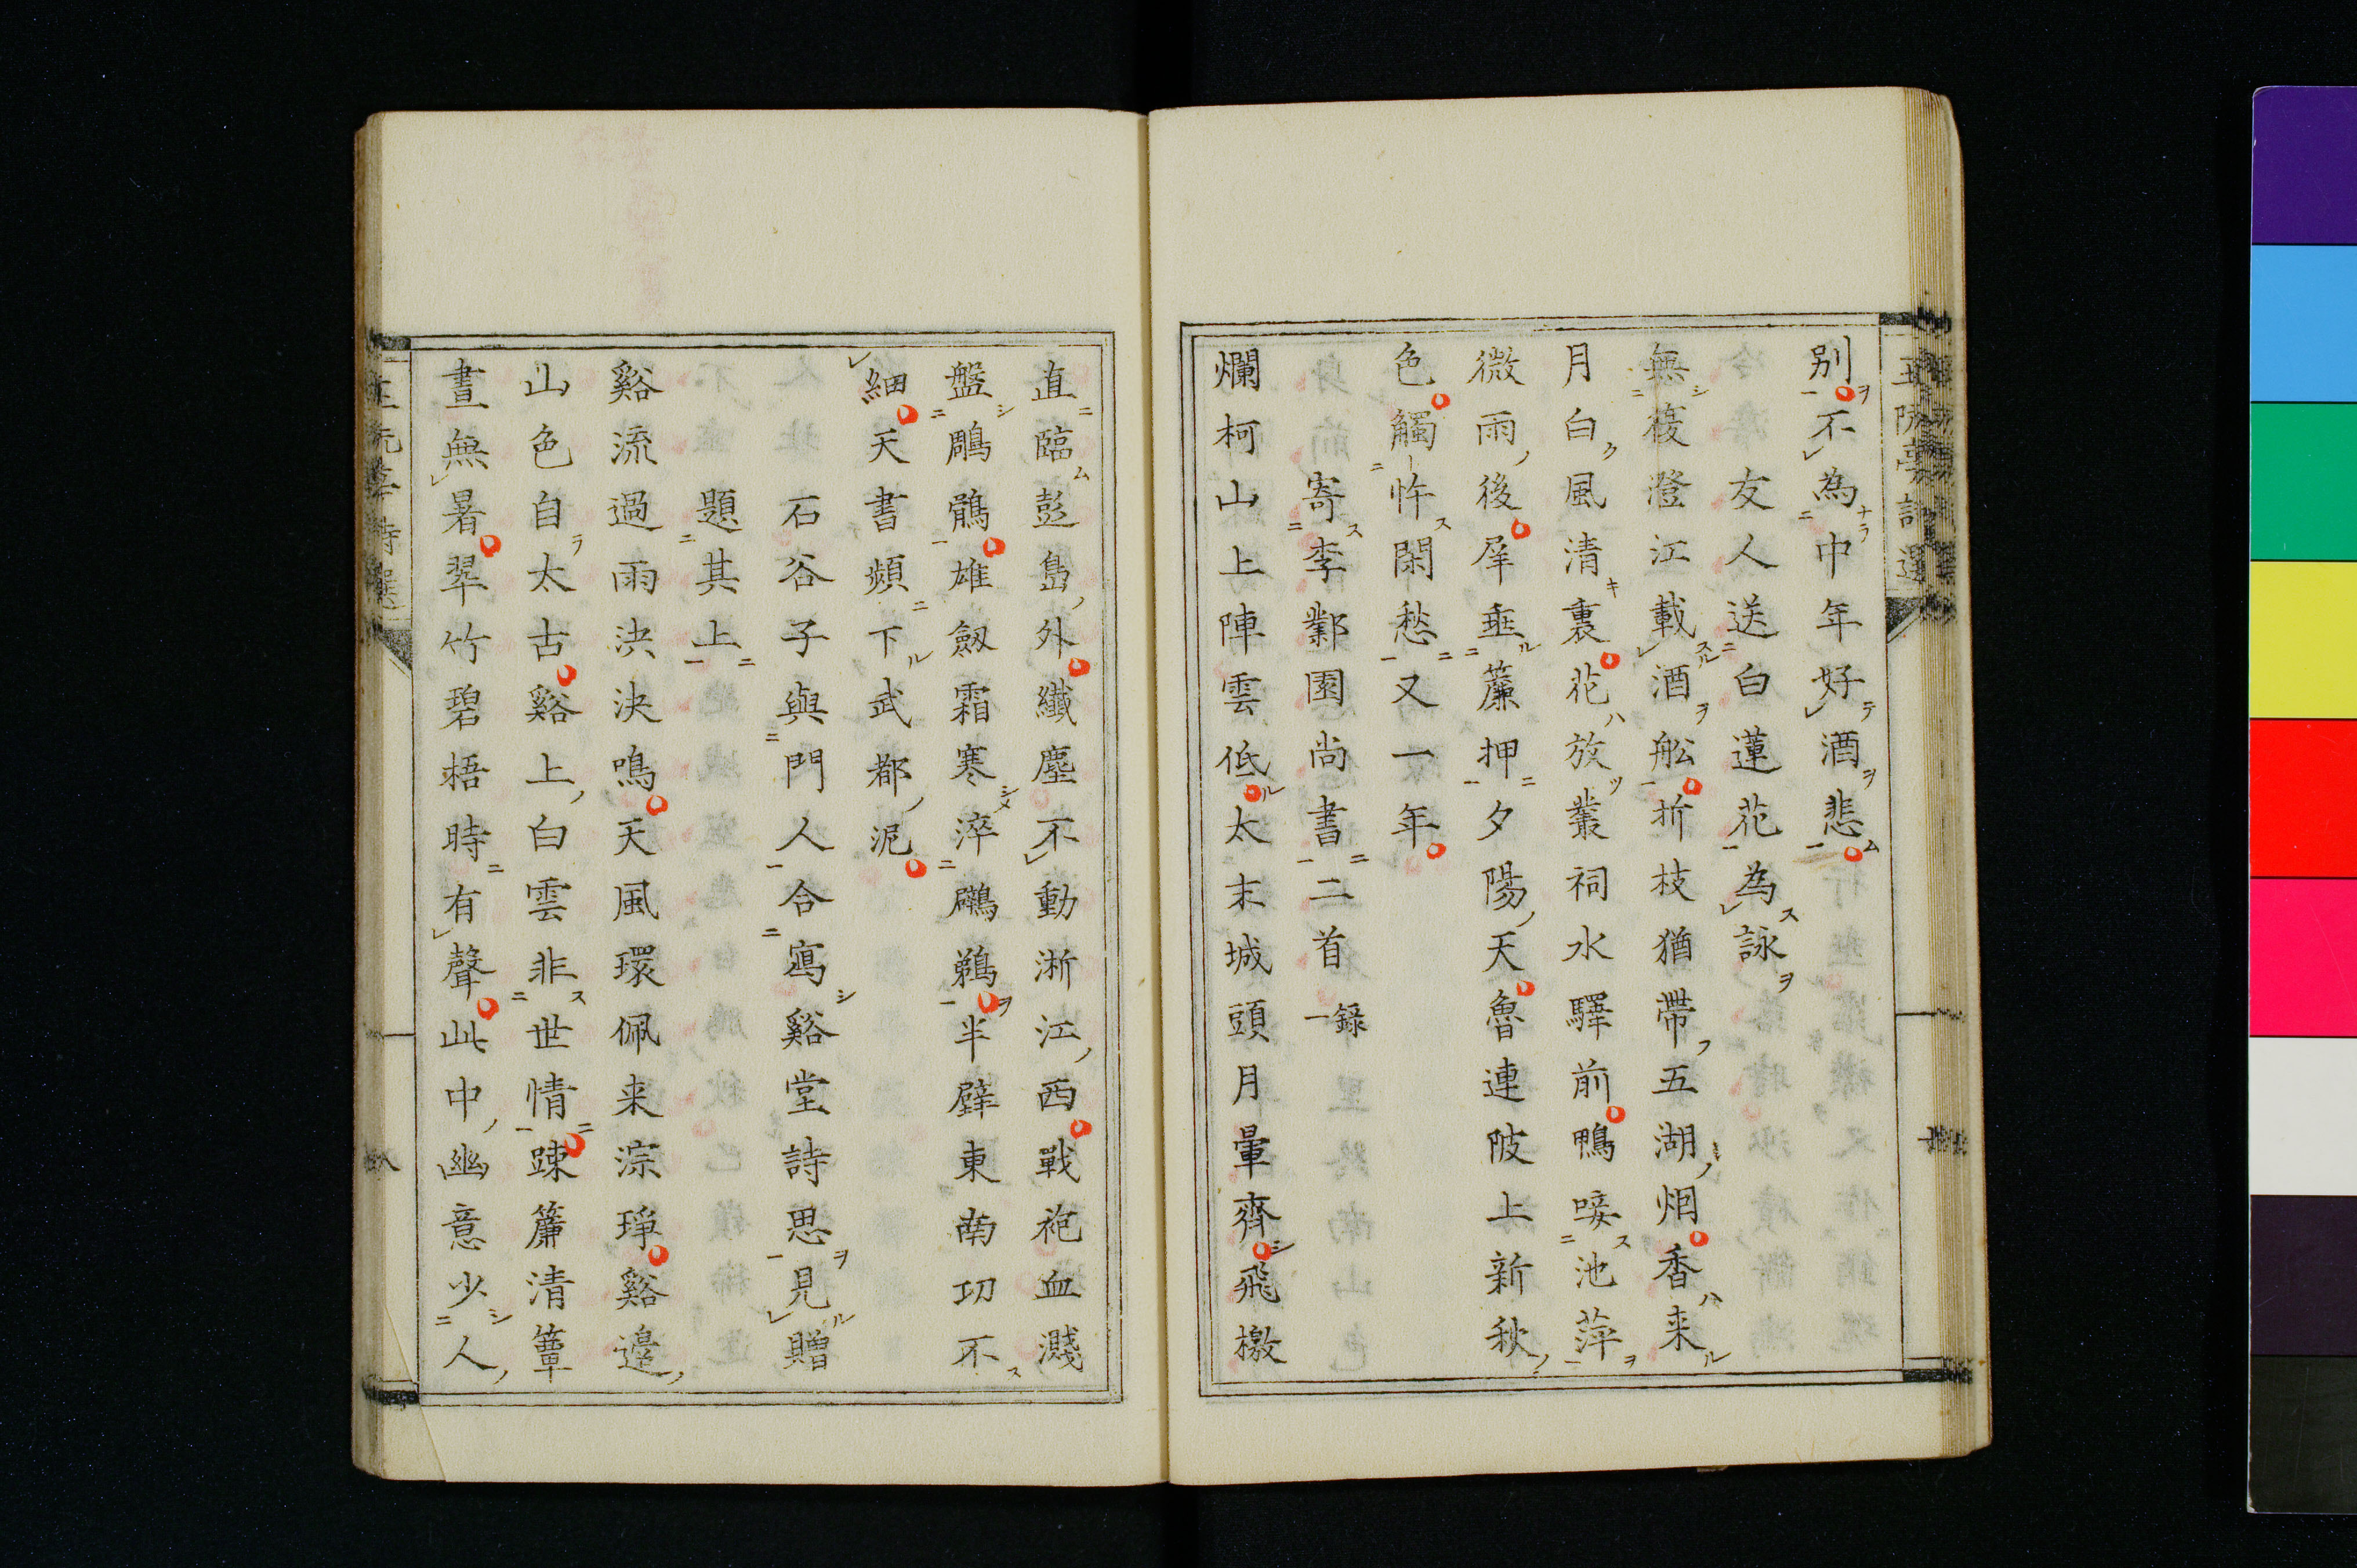 別不為中年好酒悲
友人送白蓮花為詠
無複澄江載酒舩折枝猶帶五湖烟香来
月白風清裏花放叢祠水驛前鴨唼池萍
微雨後犀垂簾押夕陽天魯連陂上新秋
色觸忤閑愁又一年
寄李鄴園尚書二首録一
爛柯山上陣雲低太末城頭月暈齊飛檄
直臨彭島外纖塵不動淅江西戰袍血濺
盤鵰鶻雄劔霜寒淬鸊鵜半壁東南功不
細天書頻下武都泥
石谷子與門人合寫谿堂詩思見贈
題其上
谿流過雨決決鳴天風環佩来淙琤谿邊
山色自太古谿上白雲非世情踈簾清簟
晝無暑翠竹碧梧時有聲此中幽意少人